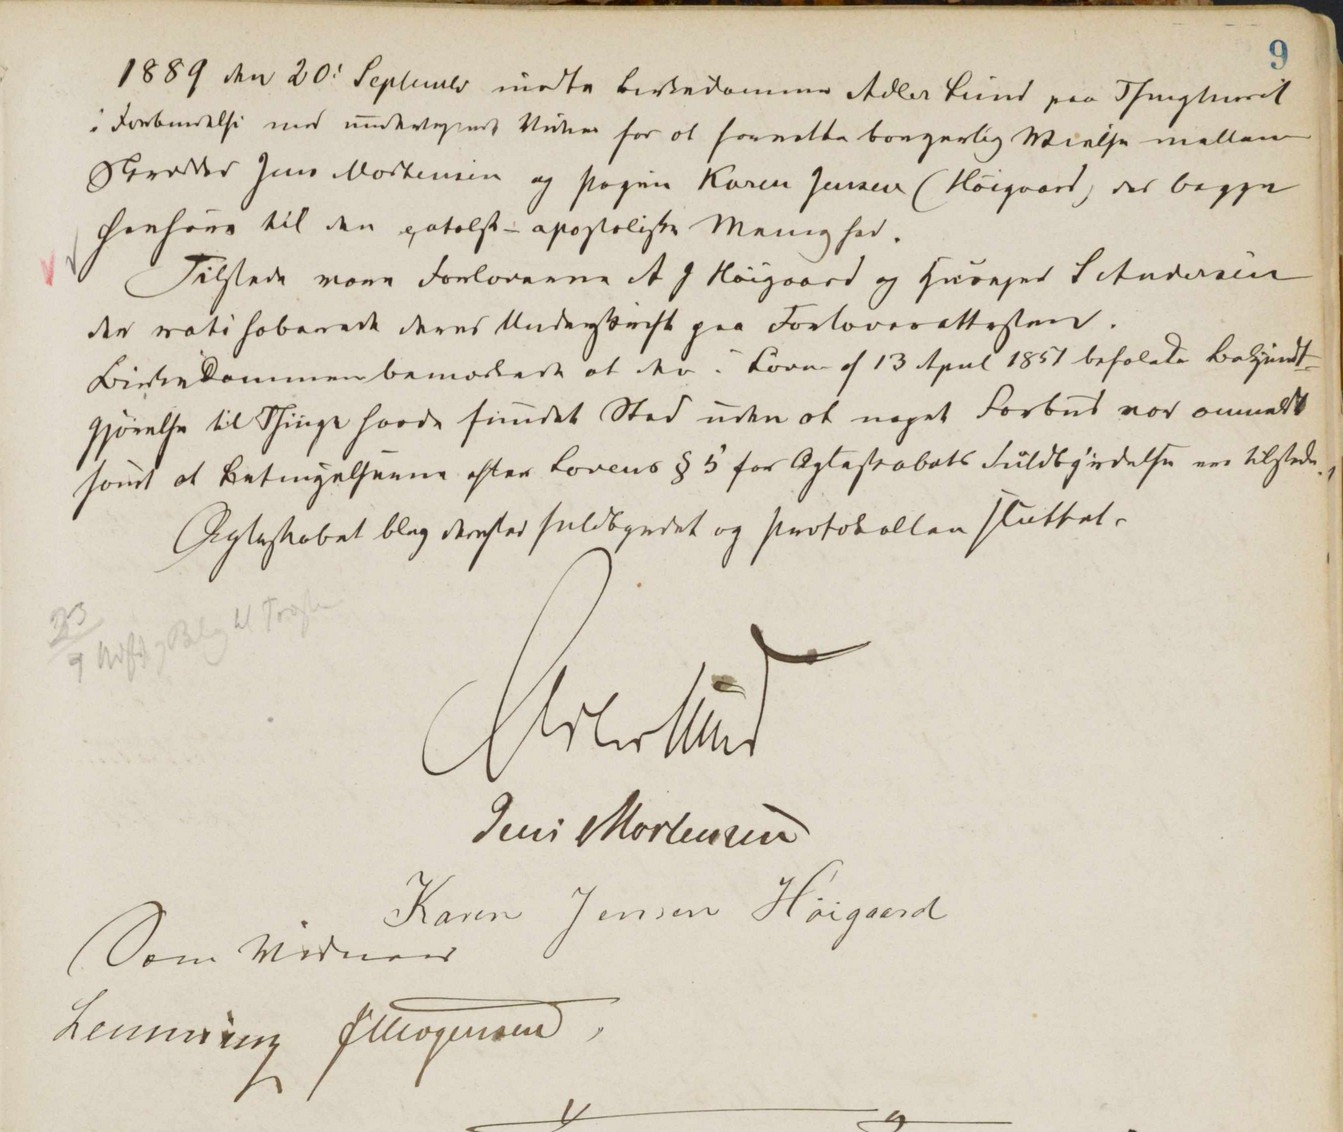 9
1889 den 20' September mødte Birkedommer Adler Lund paa Thinghuset
i Forbindelse med undertegnede Vidner for at forrette borgerlig Vielse mellem
Skrædder Jens Mortensen og Pigen Karen Jensen (Höigaard) der begge
henhøre til den catolsk-apostoliske Menighed.
Tilstede vare Forloverne A J Höigaard og S Andersen
der ratihaberede deres Underskrift paa Forloverattesten.
Birkedommeren bemærkede at den i Loven af 13 April 1851 befalede Bekjendt-
gjørelse til Thinge havde fundet Sted uden at noget Forbud var anmeldt
samt at Betingelserne efter Lovens § 5 for Ægteskabets Fuldbyrdelse ere tilstede.
Ægteskabet blev derefter fuldbyrdet og Protokollen sluttet.
23/9 til
Adler Lund
Jens Mortensen
Karen Jensen Höigaard
Som Vidner
Lemming JMogensen